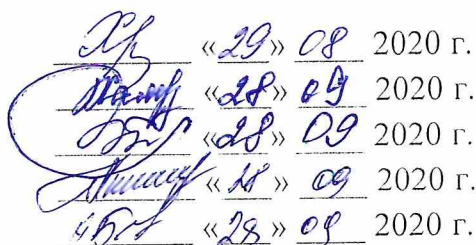 «29» 08 2020 г.
«28» 09 2020 г.
«28» 09 2020 г.
«28» 09 2020 г.
«28» 09 2020 г.